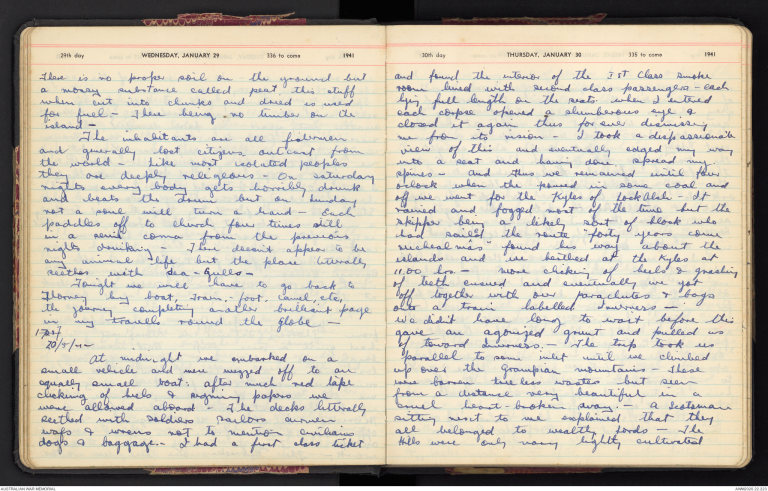 29th day WEDNESDAY, JANUARY 29 336 to come 1941
There is no proper soil on the ground but
a mossy substance called peat this stuff
when cut into chunks and dried is used
for fuel - There being no timber on the
island -
The inhabitants are all fishermen
and generally lost citizens outcast from
the world - Like most isolated peoples
they are deeply religious - On saturday
nights every body gets horribly drunk
and beats the drum but on Sunday
not a soul will turn a hand - Each
paddles off to church four times still
in a semi coma from the previous
nights drinking - There doesn't appear to be
any animal life but the place literally
seethes with sea-gulls -
Tonight we will have to go back to
by boat, tram, foot, camel, etc,
the journey completing another brilliant page
in my travells round the globe -
20/5/
At midnight we embarked on a
small vehicle and were mugged off to an
equally small boat: after much red tape
clicking of heels & signing papers we
were allowed aboard - The decks litterally
seethed with soldiers sailors airmen
waafs & wrens not to mention civilians
dogs & baggage. - I had a first class ticket
30th day THURSDAY, JANUARY 30 335 to come 1941
and found the interior of the 1st Class smoke
room lined with second class passengers - each
lying full length on the seats. When I entered
each corpse opened a slumberous eye &
closed it again thus for ever dismissing
me from its vision - I took a dispassionate
view of this and eventually edged my way
into a seat and having done, spread my
spines - and thus we remained until four
o'clock when the poured in some coal and
off we went for the Kyles of Lockalsh - It
rained and fogged most of the time but the
skipper being a likely sort of bloke who
had sailed the route "forty years come
michealmas" found his way about the
islands and we berthed at the Kyles at
11.00 hrs - more clicking of heels & gnashing
of teeth ensued and eventually we got
off together with our parachutes & bags
onto a train labelled Inverness -
We did'nt have long to wait before this
gave an agonized grunt and pulled us
off toward Inverness. - The trip took us
parallel to some inlet until we climbed
up over the Grampian mountains - These
were barren treeless wastes but seen
from a distance very beautiful in a
cruel heart-broken way. - A Scotsman
sitting next to me explained that they
all belonged to wealthy Lords - The
Hills were only very lightly cultivated
AUSTRALIAN WAR MEMORIAL